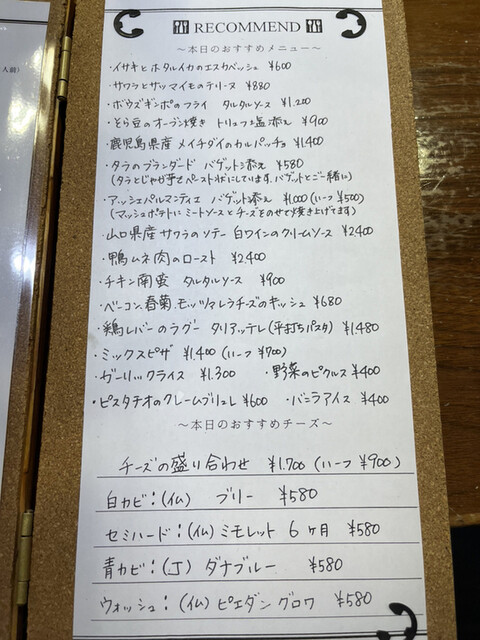 人前)
RECOMMEND
～本日のおすすめメニュー～
・イサキとホタルイカのエスカベッシュ ¥600
・サワラとサツマイモのテリーヌ ¥880
・ボウズギンポのフライ タルタルソース ¥1.200
・そら豆のオーブン焼き トリュフ塩添え ¥900
・鹿児島県産 メイチダイのカルパッチョ ¥1.400
・タラのブランダード バゲット添え ¥580
(タラとじゃが芋をペースト状にしています。バゲットとご一緒に)
・アッシェパルマンティエ バゲット添え ¥1.000 (ハーフ ¥500)
(マッシュポテトにミートソースとチーズをのせて焼き上げてます)
・山口県産サワラのソテー 白ワインのクリームソース ¥2.400
・鴨ムネ肉のロースト ¥2.400
・チキン南蛮 タルタルソース ¥900
・ベーコン、春菊、モッツァレラチーズのキッシュ ¥680
・鶏レバーのラグー タリアッテレ(平打ちパスタ) ¥1.480
・ミックスピザ ¥1.400 (ハーフ ¥700)
・ガーリックライス ¥1.300 ・野菜のピクルス ¥400
・ピスタチオのクレームブリュレ ¥600 ・バニラアイス ¥400
～本日のおすすめチーズ～
チーズの盛り合わせ ¥1.700 (ハーフ ¥900)
白カビ:(仏) ブリー ¥580
セミハード:(仏) ミモレット 6ヶ月 ¥580
青カビ:(J) ダナブルー ¥580
ウォッシュ:(仏) ピエダングロワ ¥580